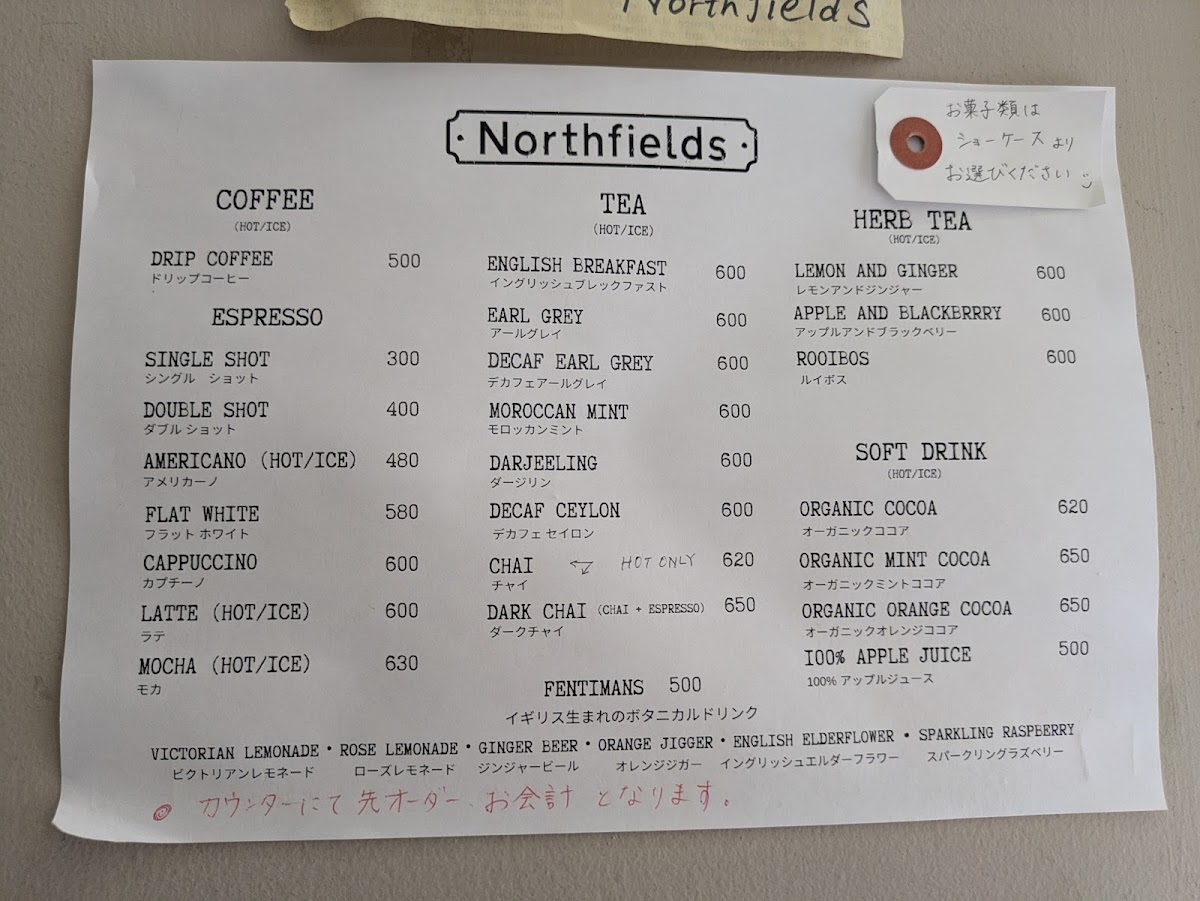 Northfields
· Northfields ·
お菓子類は
ショーケースより
お選びください
COFFEE
(HOT/ICE)
DRIP COFFEE 500
ドリップコーヒー
ESPRESSO
SINGLE SHOT 300
シングル ショット
DOUBLE SHOT 400
ダブル ショット
AMERICANO (HOT/ICE) 480
アメリカーノ
FLAT WHITE 580
フラット ホワイト
CAPPUCCINO 600
カプチーノ
LATTE (HOT/ICE) 600
ラテ
MOCHA (HOT/ICE) 630
モカ
TEA
(HOT/ICE)
ENGLISH BREAKFAST 600
イングリッシュブレックファスト
EARL GREY 600
アールグレイ
DECAF EARL GREY 600
デカフェアールグレイ
MOROCCAN MINT 600
モロッカンミント
DARJEELING 600
ダージリン
DECAF CEYLON 600
デカフェ セイロン
CHAI HOT ONLY 620
チャイ
DARK CHAI (CHAI + ESPRESSO) 650
ダークチャイ
HERB TEA
(HOT/ICE)
LEMON AND GINGER 600
レモンアンドジンジャー
APPLE AND BLACKBRRRY 600
アップルアンドブラックベリー
ROOIBOS 600
ルイボス
SOFT DRINK
(HOT/ICE)
ORGANIC COCOA 620
オーガニックココア
ORGANIC MINT COCOA 650
オーガニックミントココア
ORGANIC ORANGE COCOA 650
オーガニックオレンジココア
100% APPLE JUICE 500
100% アップルジュース
FENTIMANS 500
イギリス生まれのボタニカルドリンク
VICTORIAN LEMONADE・ROSE LEMONADE・GINGER BEER・ORANGE JIGGER・ENGLISH ELDERFLOWER・SPARKLING RASPBERRY
ビクトリアンレモネード ローズレモネード ジンジャービール オレンジジガー イングリッシュエルダーフラワー スパークリングラズベリー
◎ カウンターにて先オーダー、お会計となります。